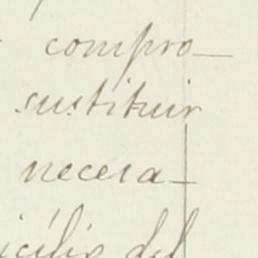 compro-
sustituir
necesa-
icilio del